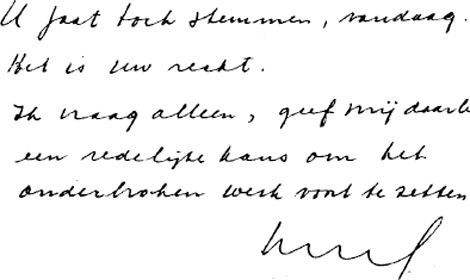 U gaat toch stemmen, vandaag.
Het is uw recht.
Ik vraag alleen, geef mij daarb
een redelijke kans om het
onderbroken werk voort te zetten